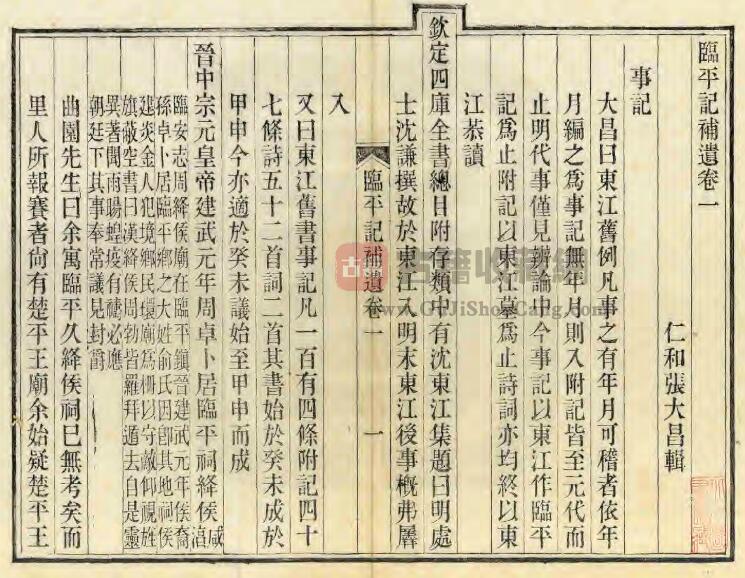 臨平記補遺卷一
仁和張大昌輯
事記
大昌曰東江舊例凡事之有年月可稽者依年
月編之爲事記無年月則入附記皆至元代而
止明代事僅見辨論中今事記以東江作臨平
記爲止附記以東江墓爲止詩詞亦均終以東
江恭讀
欽定四庫全書總目附存類中有沈東江集題曰明處
士沈謙撰故於東江入明末東江後事概弗羼
入
臨平記補遺卷一
一
又曰東江舊書事記凡一百有四條附記四十
七條詩五十二首詞二首其書始於癸未成於
甲申今亦適於癸未議始至甲申而成
晉中宗元皇帝建武元年周卓卜居臨平祠絳侯咸淳
臨安志周絳侯廟在臨平鎮晉建武元年侯裔
孫卓卜居臨平鄉之大姓俞氏因卽其地祠侯
建炎金人犯境鄉民環廟爲柵以守敵仰視旌
旗蔽空書曰漢絳侯周勃皆羅拜遁去自是靈
異著聞雨暘蝗疫有禱必應
朝廷下其事奉常議見封爵
曲園先生曰余寓臨平久絳侯祠已無考矣而
里人所報賽者尙有楚平王廟余始疑楚平王
古籍收藏網
www.GuJiShouCang.com